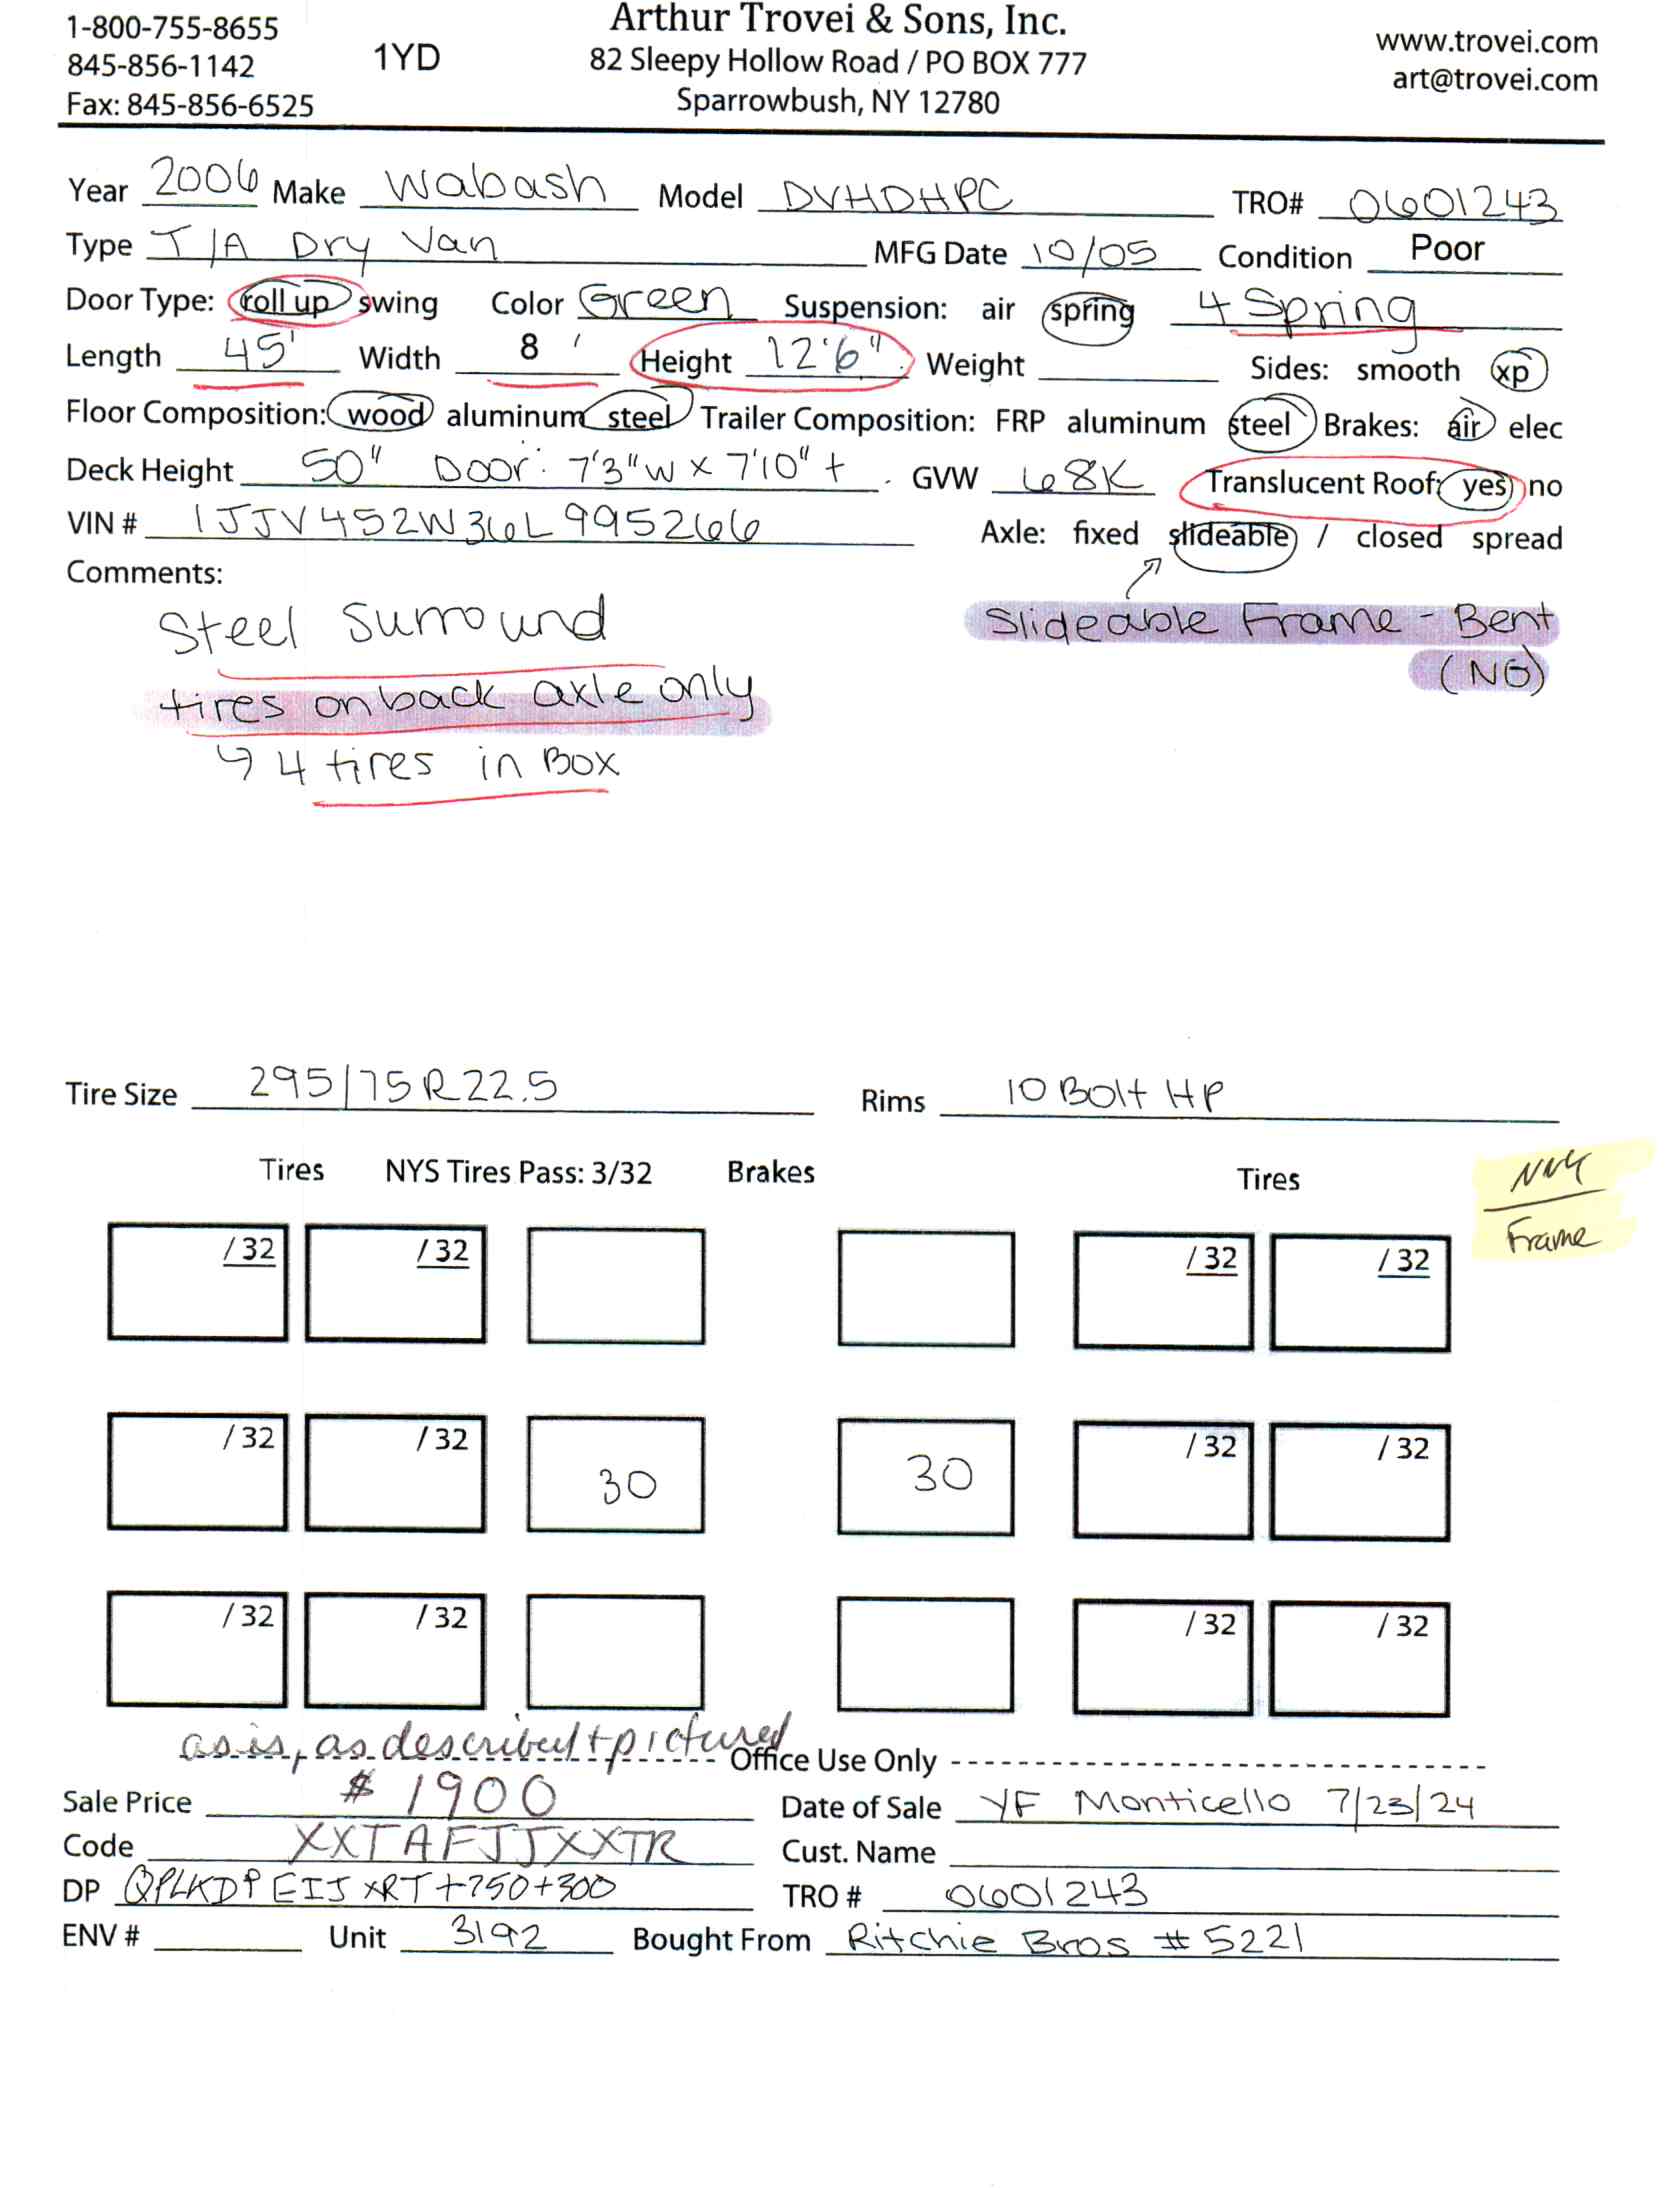 1-800-755-8655
845-856-1142
Fax: 845-856-6525
1YD
Arthur Trovei & Sons, Inc.
82 Sleepy Hollow Road / PO BOX 777
Sparrowbush, NY 12780
www.trovei.com
art@trovei.com
Year 2006 Make Wabash Model DVHDHPC TRO# 0601243
Type T/A Dry Van MFG Date 10/05 Condition Poor
Door Type: roll up swing Color Green Suspension: air spring 4 Spring
Length 45' Width 8 ' Height 12'6" Weight Sides: smooth xp
Floor Composition: wood aluminum steel Trailer Composition: FRP aluminum steel Brakes: air elec
Deck Height 50" Door: 7'3"W x 7'10" + . GVW 68K Translucent Roof: yes no
VIN # 1JJV452W36L995266 Axle: fixed slideable / closed spread
Comments:
Steel Surround
Slideable Frame - Bent
(NG)
tires on back axle only
↳ 4 tires in Box
Tire Size 295/75R22.5 Rims 10 Bolt HP
Tires NYS Tires Pass: 3/32 Brakes Tires
Frame
/ 32 / 32 / 32 / 32
/ 32 / 32 30 30 / 32 / 32
/ 32 / 32 / 32 / 32
as is, as described + pictured
Office Use Only
Sale Price $ 1900 Date of Sale YF Monticello 7/23/24
Code XXTAFJJXXTR Cust. Name
DP QPLKDPEIJXRT+750+300 TRO # 0601243
ENV # Unit 3192 Bought From Ritchie Bros # 5221